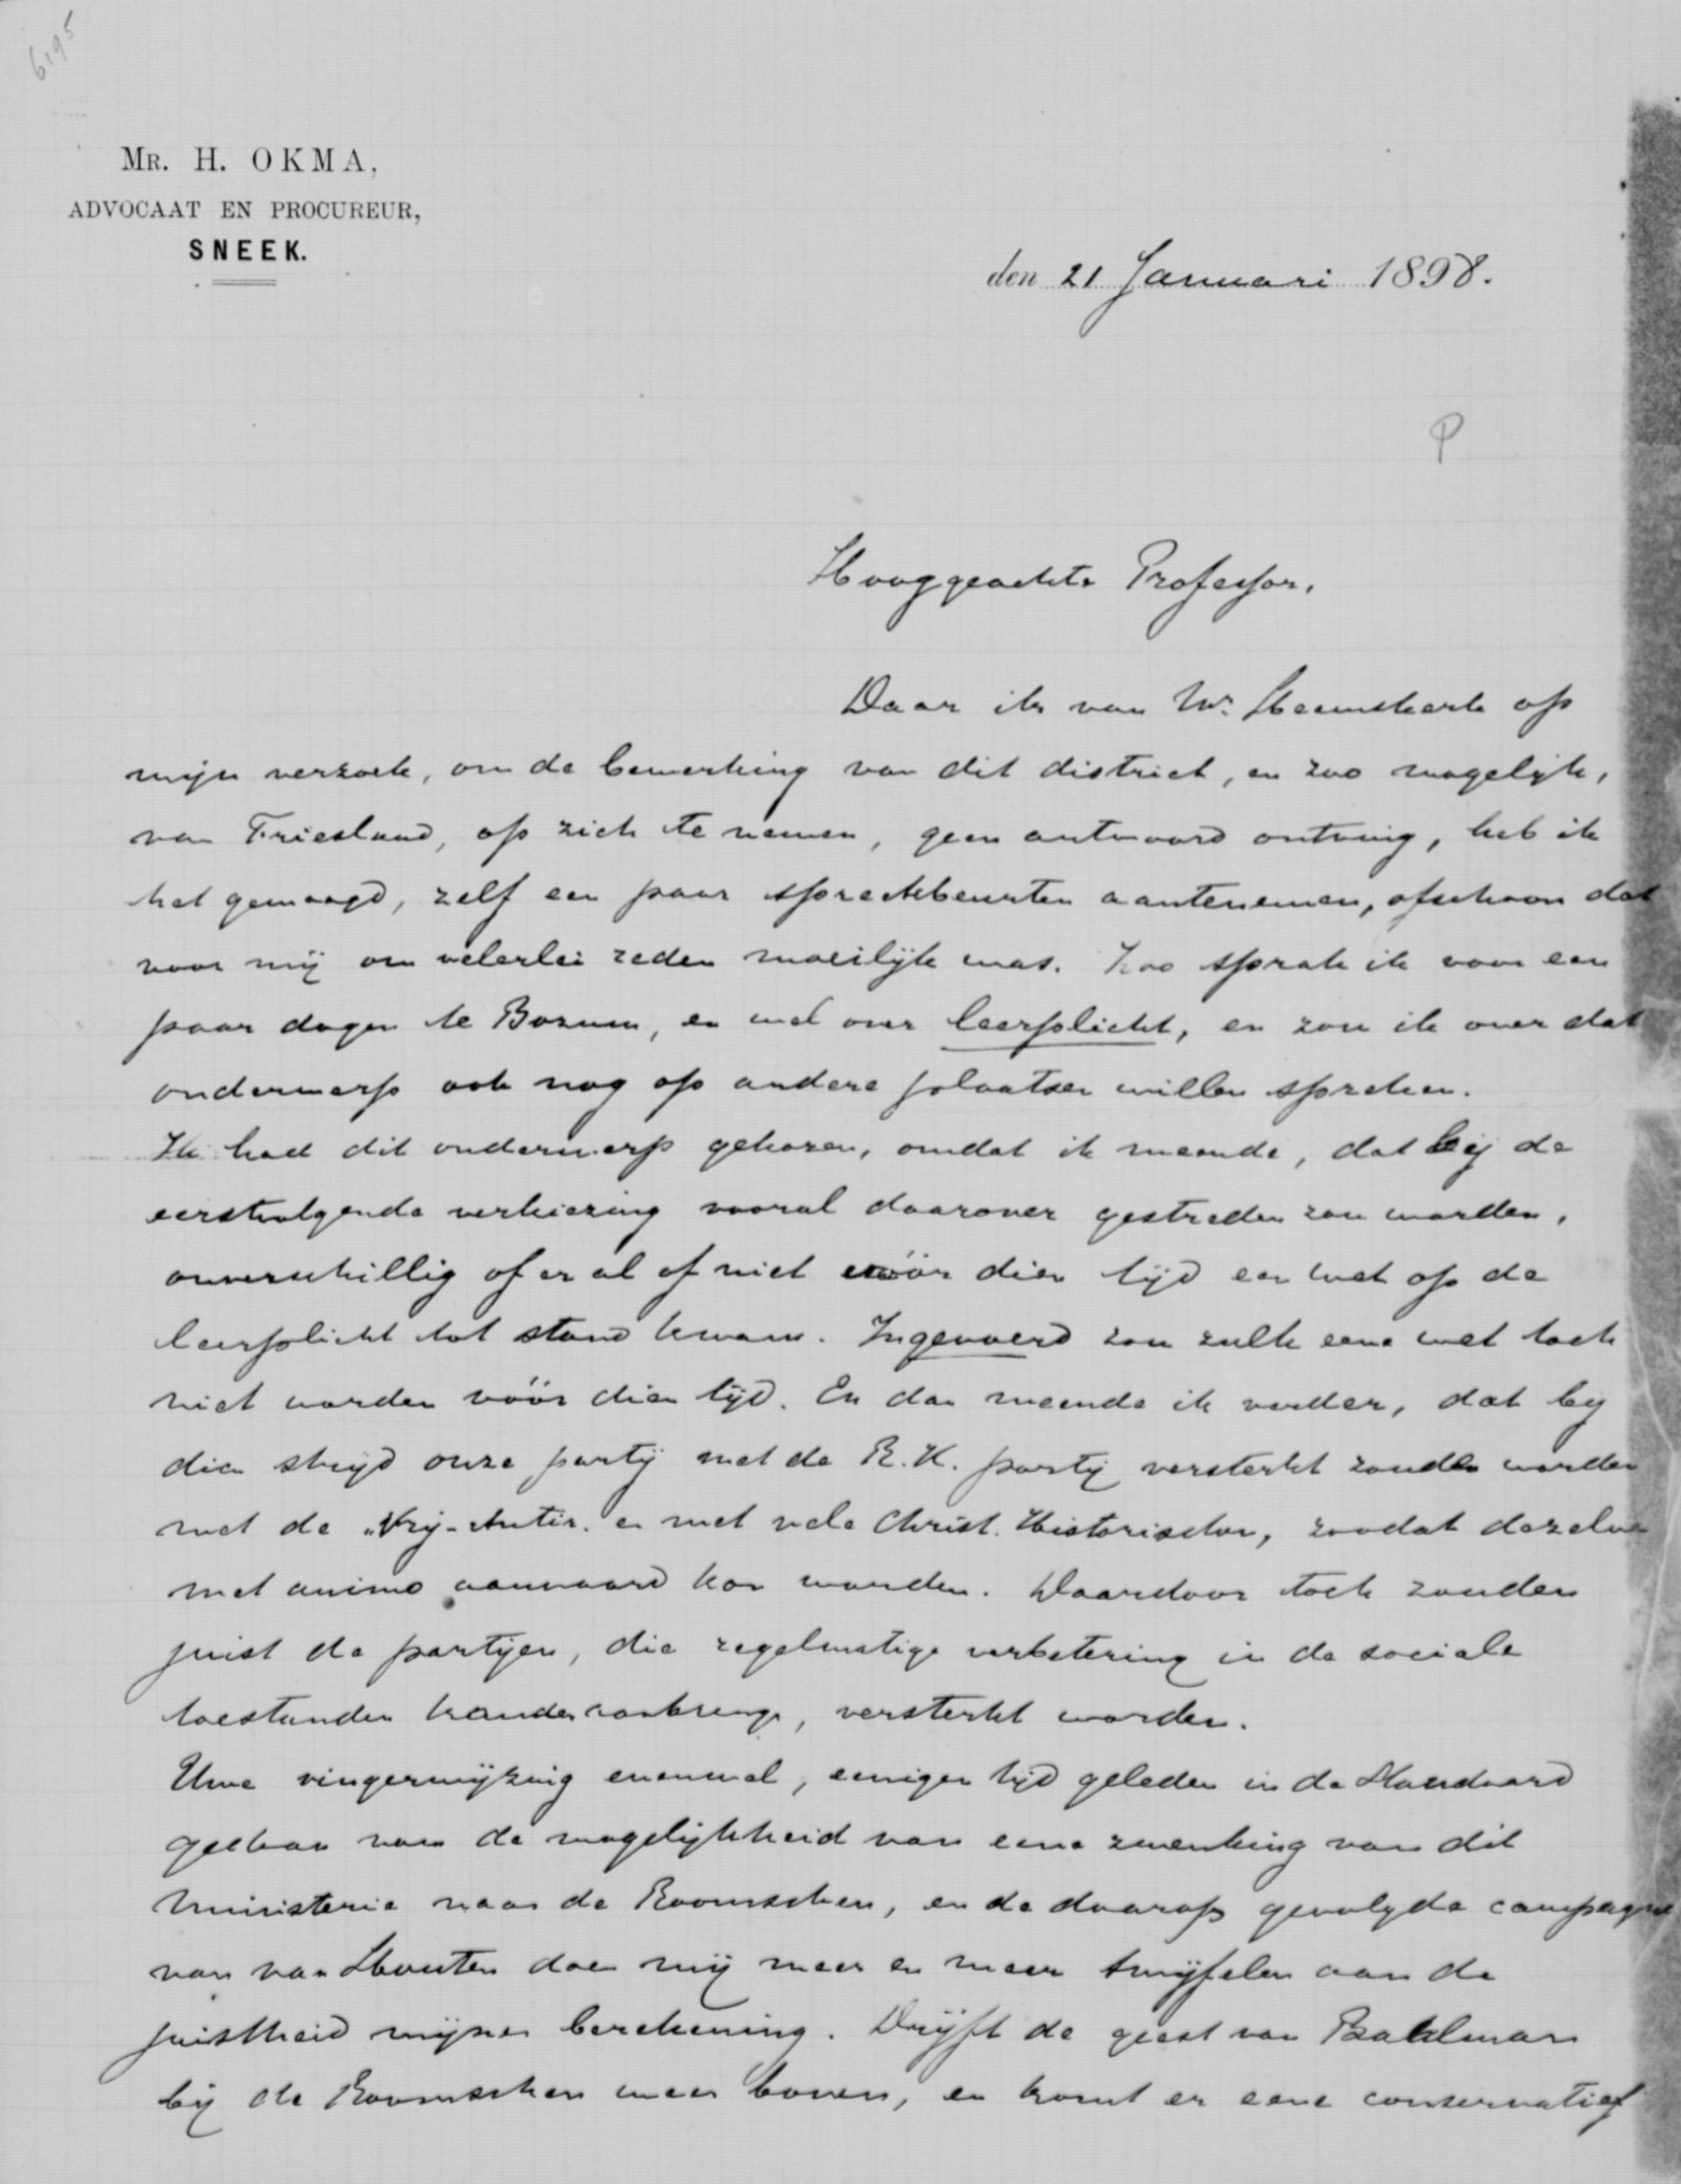 6195
MR. H. OKMA,
ADVOCAAT EN PROCUREUR,
SNEEK.
den 21 Januari 1898.
P
Hooggeachte Professor,
Daar ik van Mr. Heemskerk op
mijn verzoek, om de bewerking van dit district, en zoo mogelijk,
van Friesland, op zich te nemen, geen antwoord ontving, heb ik
het gewaagd, zelf een paar spreekbeurten aantenemen, ofschoon dat
voor mij om velerlei reden moeilijk was. Zoo sprak ik voor een
paar dagen te Bozum, en wel over leerplicht, en zou ik over dat
onderwerp ook nog op andere plaatsen willen spreken.
Ik had dit onderwerp gekozen, omdat ik meende, dat bij de
eerstvolgende verkiezing vooral daarover gestreden zou worden,
onverschillig of er al of niet vóór dien tijd een wet op de
leerplicht tot stand kwam. Ingevoerd zou zulk eene wet toch
niet worden vóór dien tijd. En dan meende ik verder, dat bij
dien strijd onze partij met de R.K. partij versterkt zouden worden
met de "Vrij-Antir. en met vele Christ. Historischen, zoodat dezelve
met animo aanvaard kon worden. Daardoor toch zouden
juist de partijen, die regelmatige verbetering in de sociale
toestanden kunnen aanbrengen, versterkt worden.
Uwe vingerwijzing evenwel, eenigen tijd geleden in de Standaard
gedaan van de mogelijkheid van eene zwenking van dit
ministerie naar de Roomschen, en de daarop gevolgde campagne
van van Houten doen mij meer en meer twijfelen aan de
juistheid mijner berekening. Drijft de geest van Bahlman
bij de Roomschen weer boven, en komt er eene conservatief